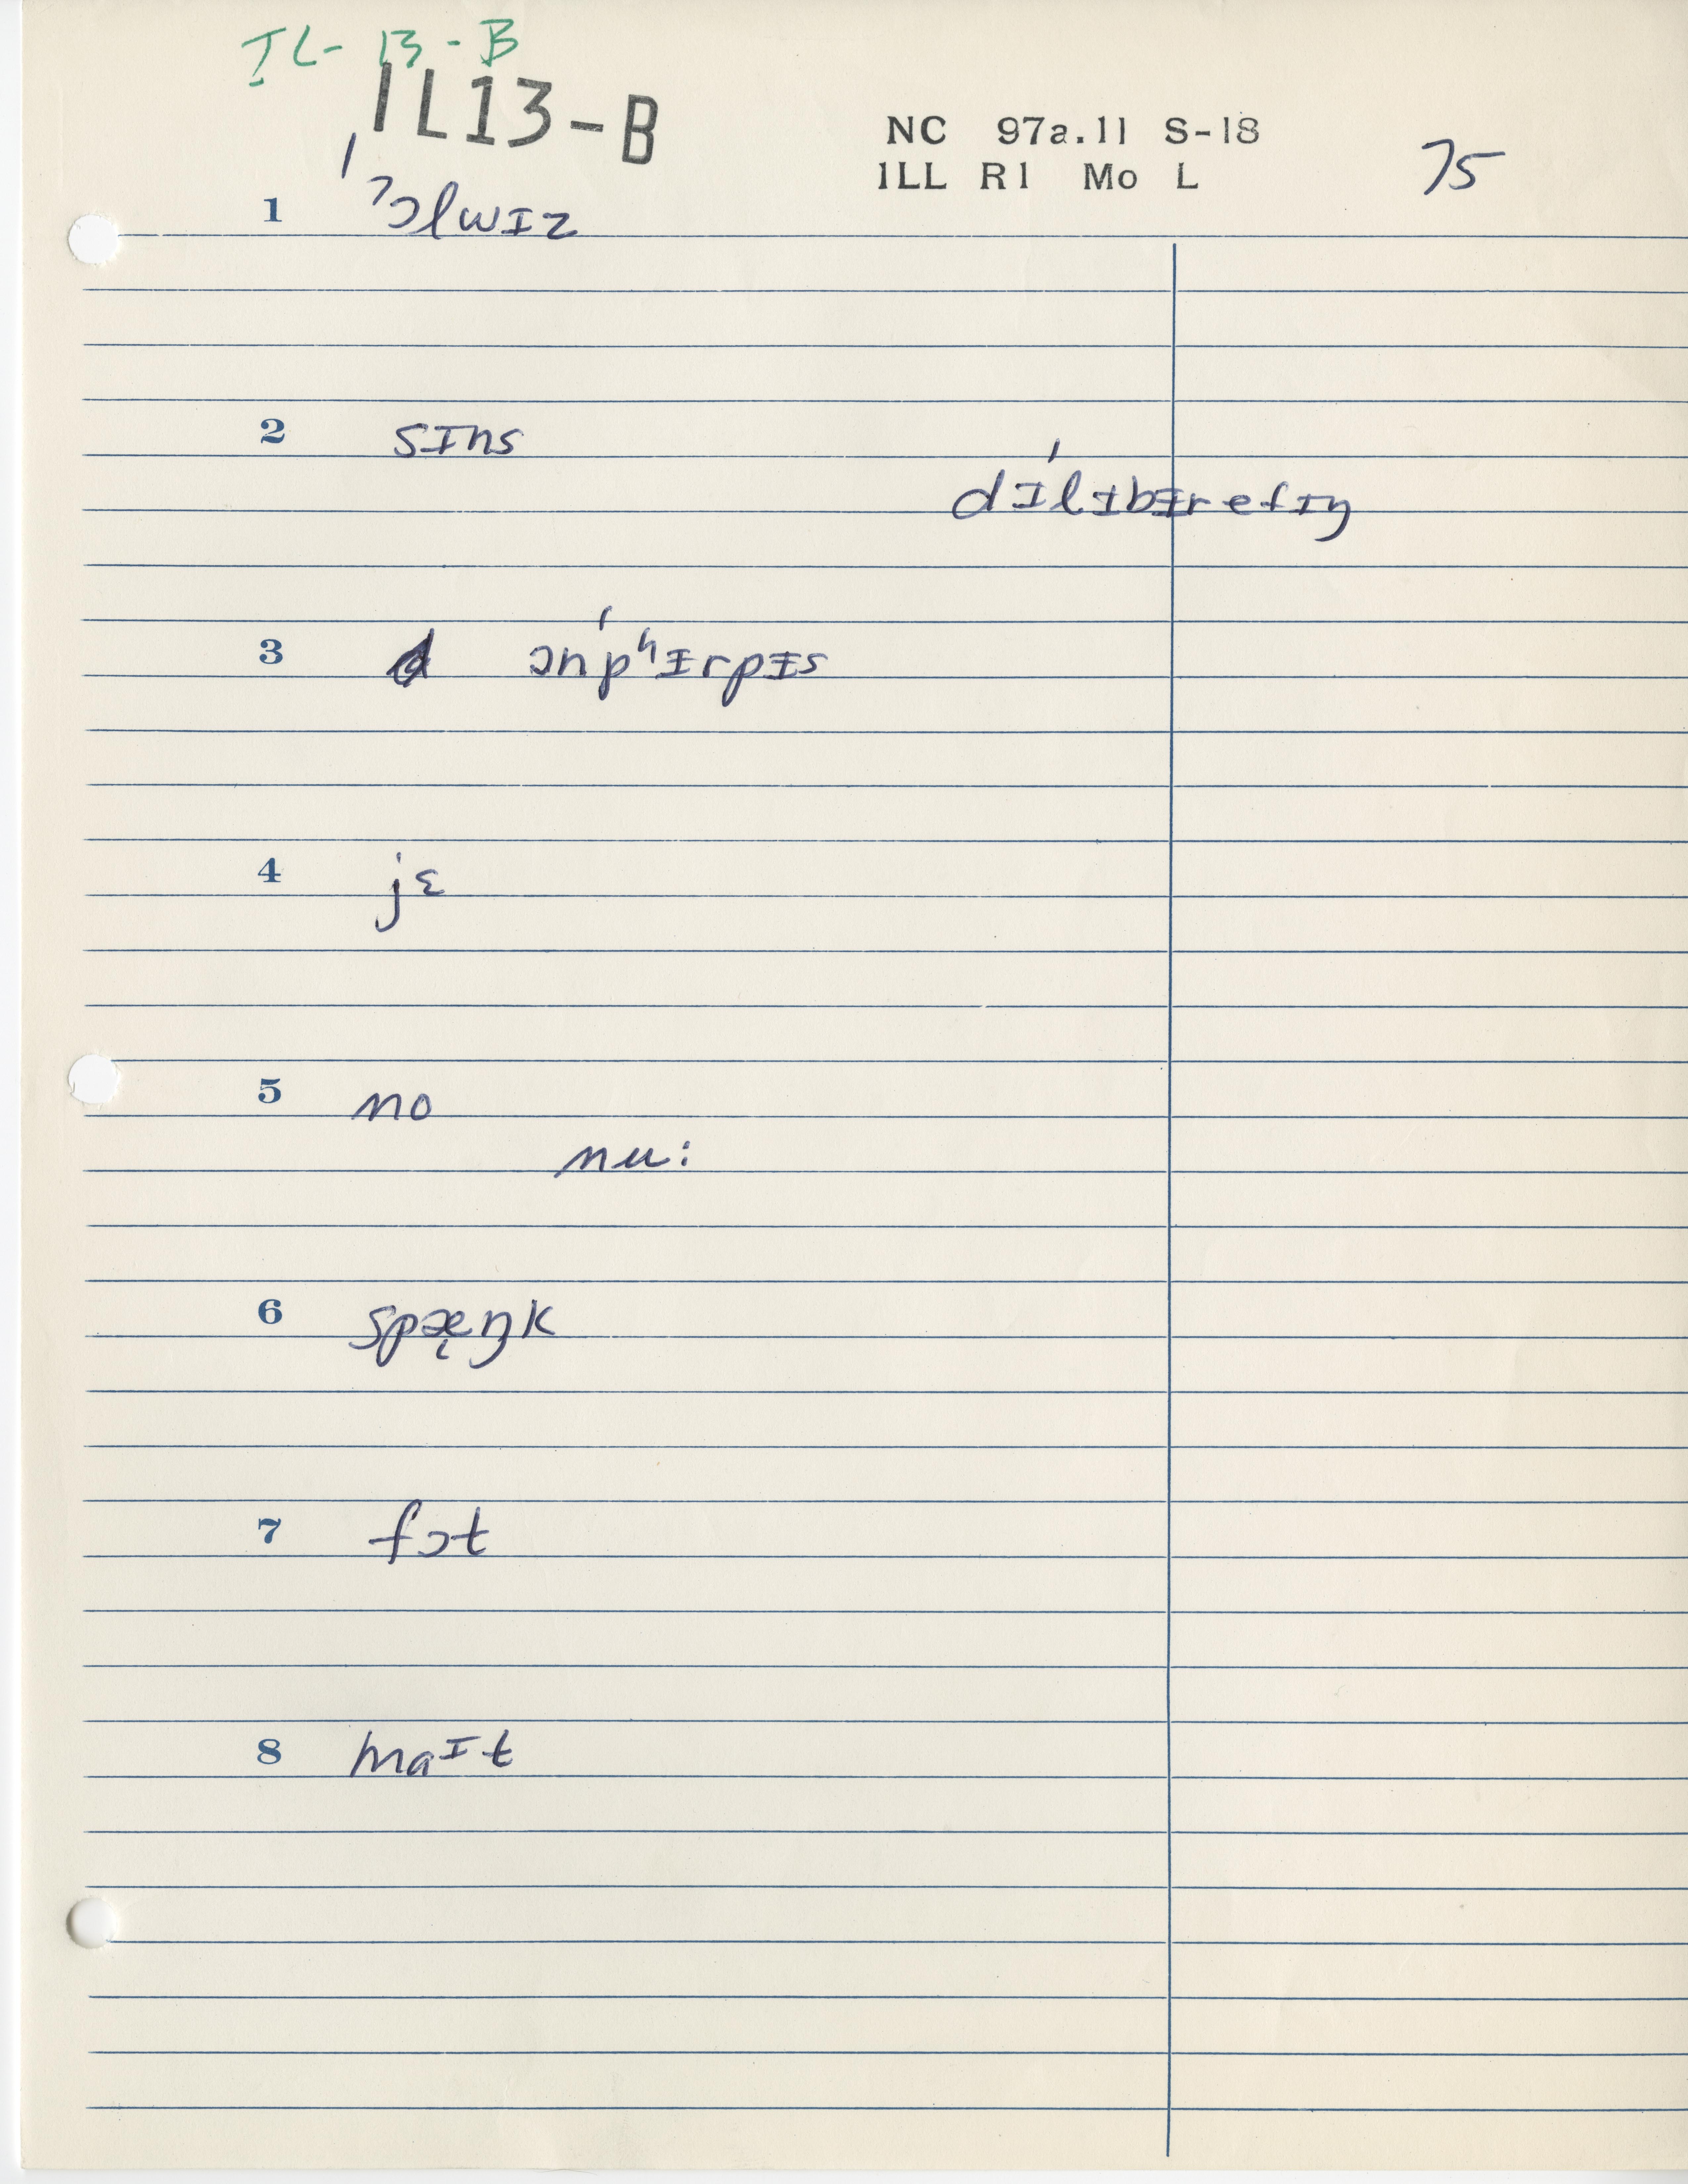 IL-13-B
IL13-B
NC 97a.11 S-18
ILL R1 Mo L
75
1 ˈʔɔlwɪz
2 sɪns
dɪˈlɪbɨretɪŋ
3 ɔnˈpʰɨrpɨs
4 jɛ
5 no
nu:
6 spæ̨ŋk
7 fɔt
8 maᴵt